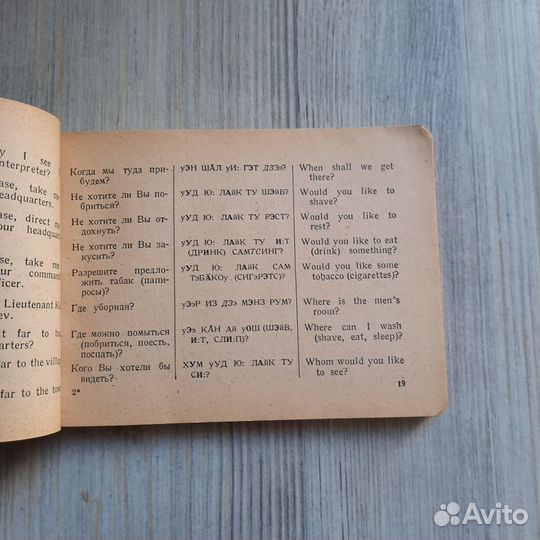 y I see
nterpreter?
ase, take me
eadquarters.
ase, direct me
our headquart
ase, take me
our comman
ficer.
Lieutenant K
ev.
t far to
arters?
far to the villa
far to the tow
Когда мы туда при-
будем?
Не хотите ли Вы по-
бриться?
Не хотите ли Вы от-
дохнуть?
Не хотите ли Вы за-
кусить?
Разрешите предло-
жить табак (папи-
росы)?
Где уборная?
Где можно помыться
(побриться, поесть,
поспать)?
Кого Вы хотели бы
видеть?
2*
уЭН ШАЛ уИ: ГЭТ ДЗЭə?
уУД Ю: ЛАйК ТУ ШЭйВ?
уУД Ю: ЛАйК ТУ РЭСТ?
уУД Ю: ЛАйК ТУ И:Т
(ДРИНК) САМТСИНГ?
уУД Ю: ЛАйК САМ
ТэБÄКОу (СИГэРЭТС)?
уЭəР ИЗ ДЗэ МЭНЗ РУМ?
уЭə КÄН Ай уОШ (ШЭйВ,
И:Т, СЛИ:П)?
ХУМ уУД Ю: ЛАйК ТУ
СИ:?
When shall we get
there?
Would you like to
shave?
Would you like to
rest?
Would you like to eat
(drink) something?
Would you like some
tobacco (cigarettes)?
Where is the men's
room?
Where can I wash
(shave, eat, sleep)?
Whom would you like
to see?
19
Avito